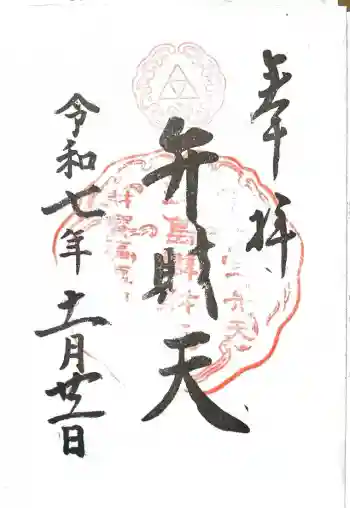 奉拝
弁財天
令和七年十一月廿一日